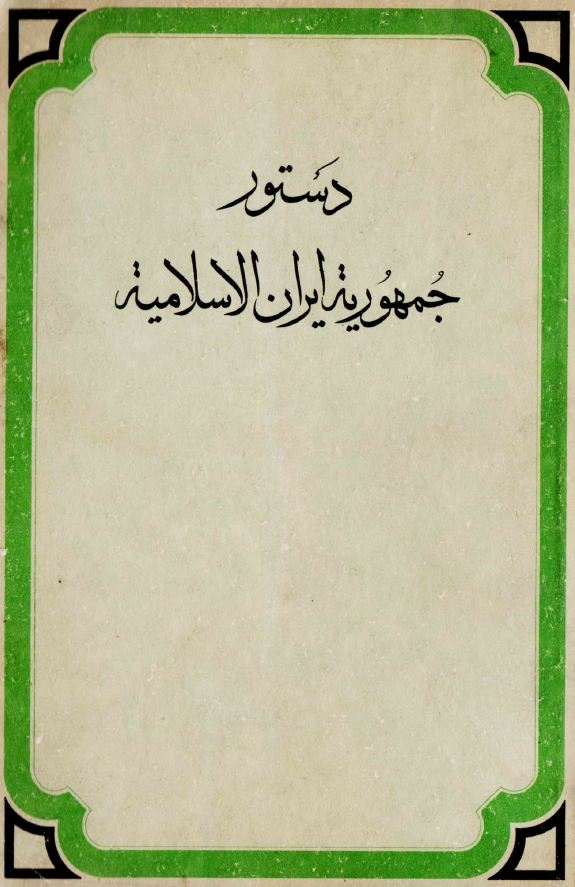 دَستور
جُمهُورية ايران الاسلامية